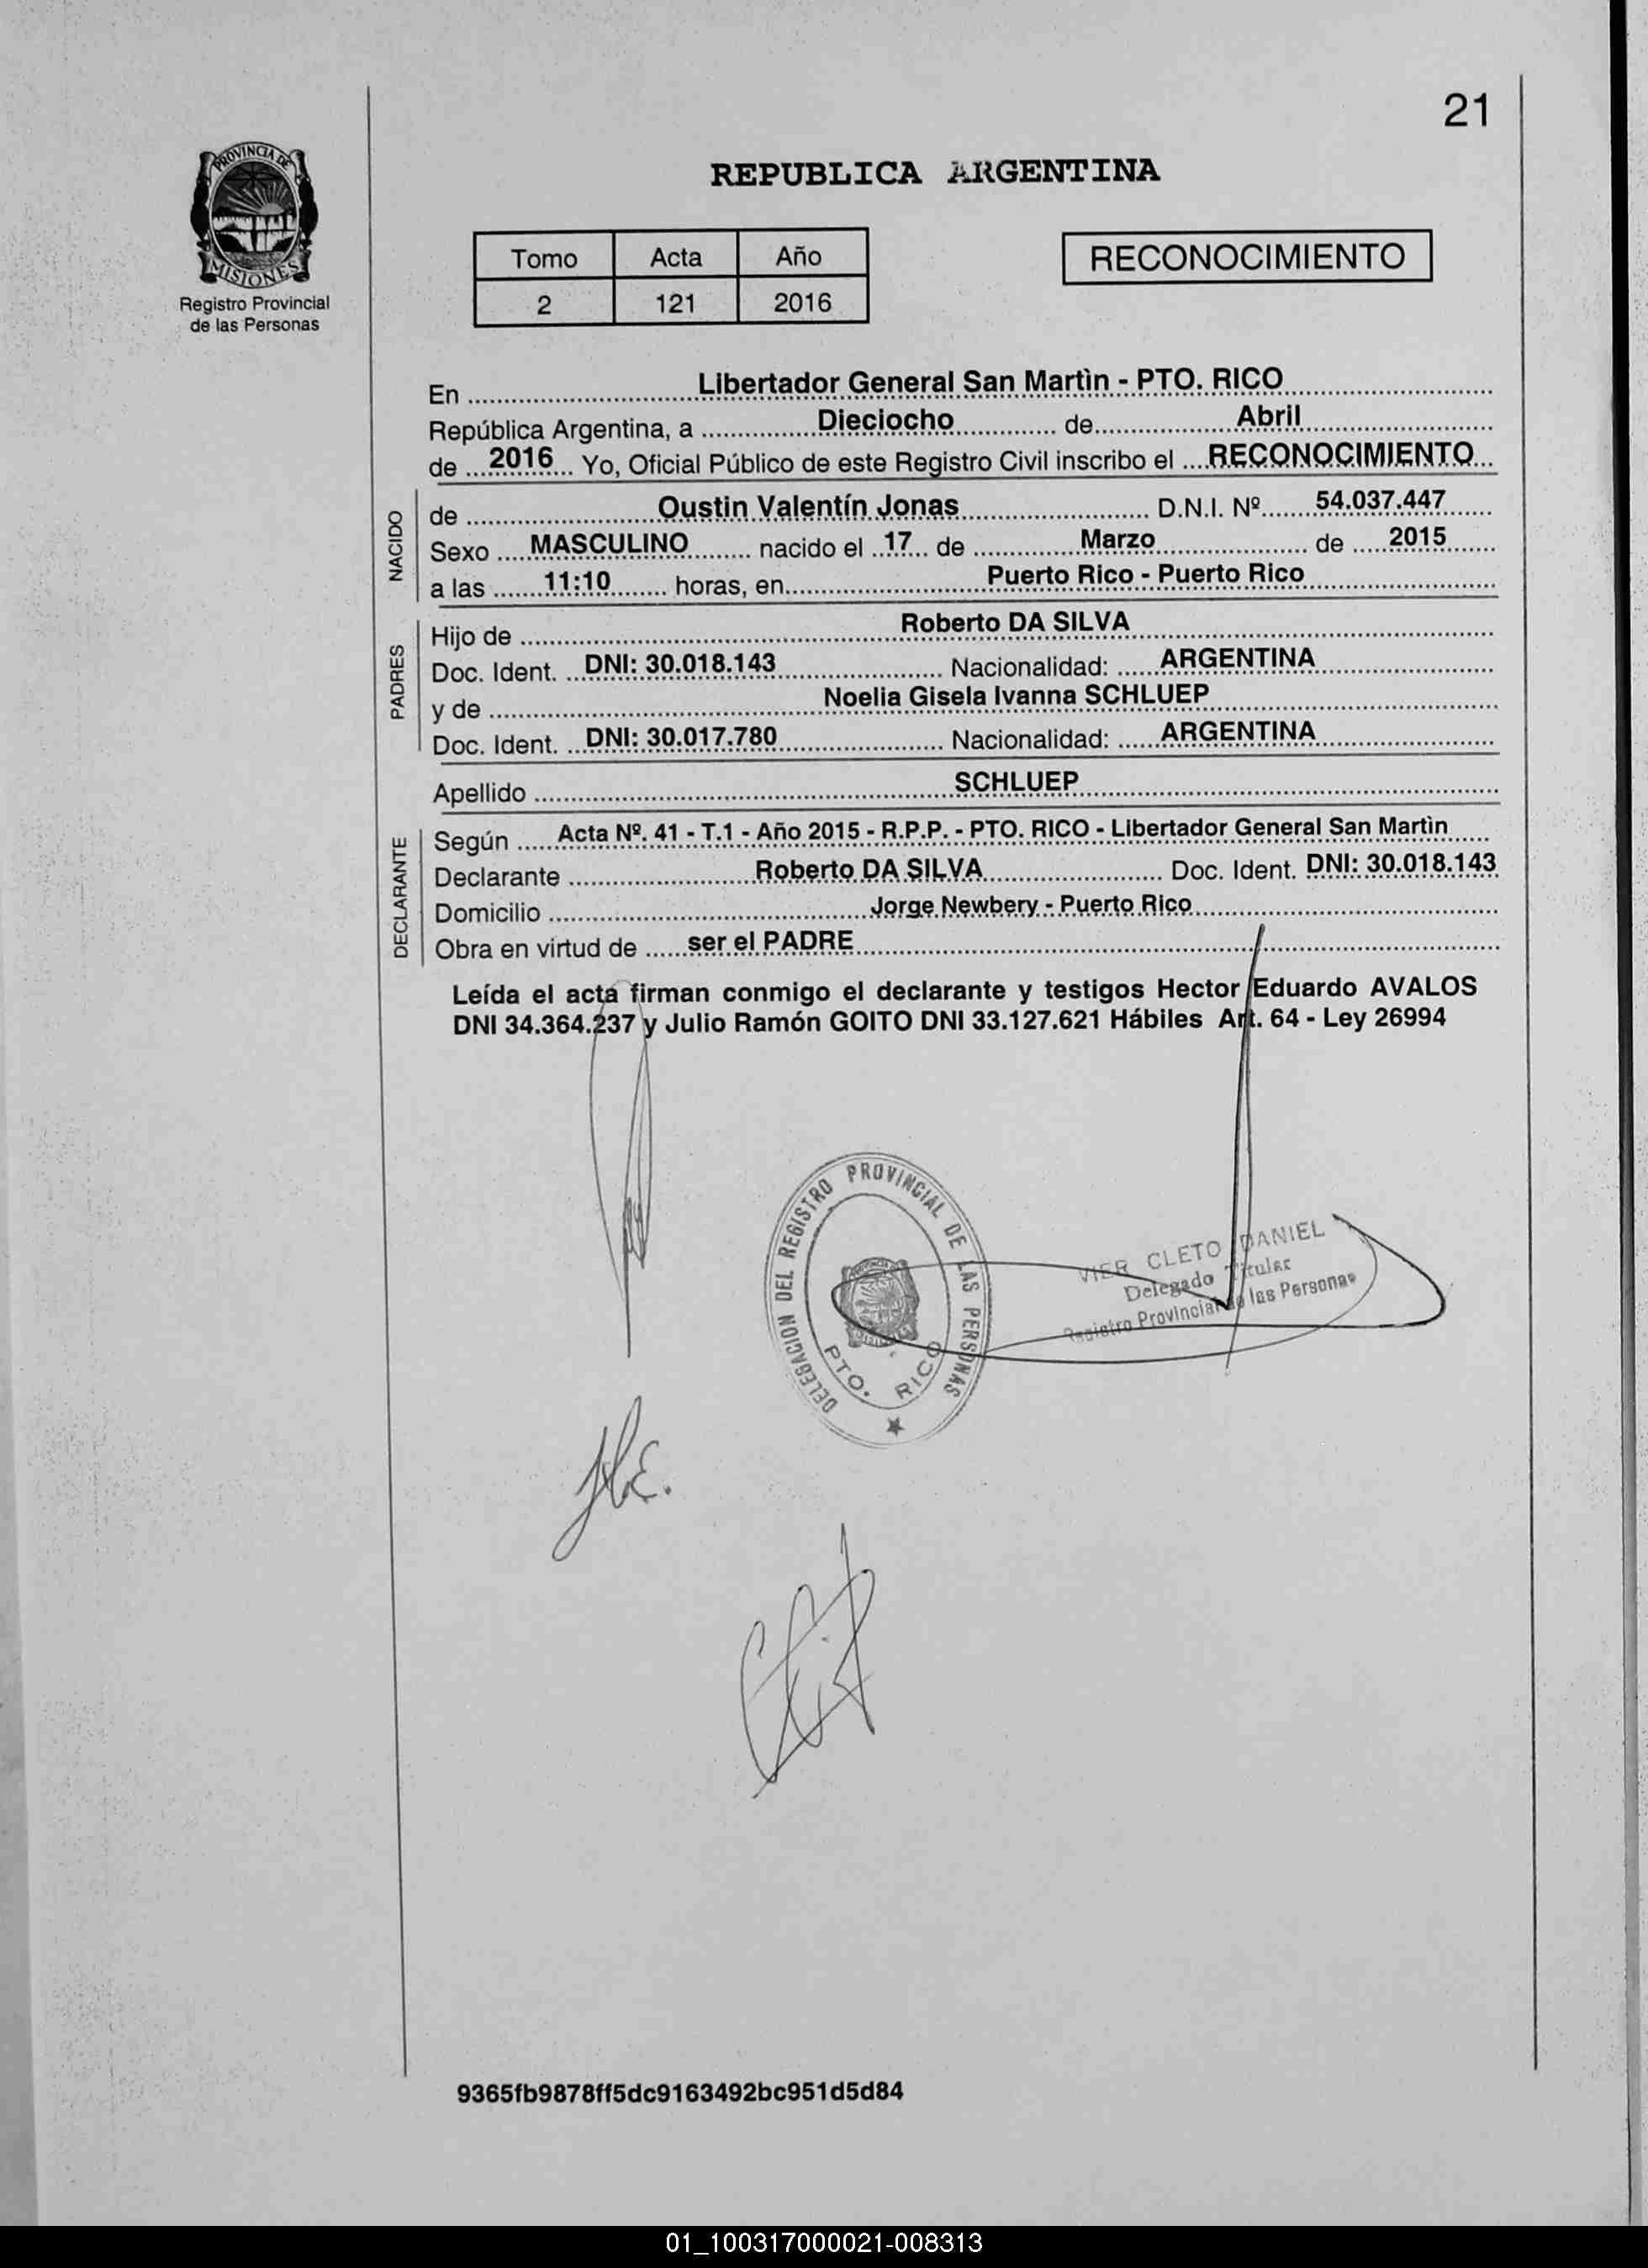 21
PROVINCIA DE
MISIONES
Registro Provincial
de las Personas
REPUBLICA ARGENTINA
Tomo Acta Año
2 121 2016
RECONOCIMIENTO
En Libertador General San Martìn - PTO. RICO
República Argentina, a Dieciocho de Abril
de 2016 Yo, Oficial Público de este Registro Civil inscribo el RECONOCIMIENTO
NACIDO
de Oustin Valentín Jonas D.N.I. Nº 54.037.447
Sexo MASCULINO nacido el 17 de Marzo de 2015
a las 11:10 horas, en Puerto Rico - Puerto Rico
PADRES
Hijo de Roberto DA SILVA
Doc. Ident. DNI: 30.018.143 Nacionalidad: ARGENTINA
y de Noelia Gisela Ivanna SCHLUEP
Doc. Ident. DNI: 30.017.780 Nacionalidad: ARGENTINA
Apellido SCHLUEP
DECLARANTE
Según Acta Nº. 41 - T.1 - Año 2015 - R.P.P. - PTO. RICO - Libertador General San Martìn
Declarante Roberto DA SILVA Doc. Ident. DNI: 30.018.143
Domicilio Jorge Newbery - Puerto Rico
Obra en virtud de ser el PADRE
Leída el acta firman conmigo el declarante y testigos Hector Eduardo AVALOS
DNI 34.364.237 y Julio Ramón GOITO DNI 33.127.621 Hábiles Art. 64 - Ley 26994
DELEGACION DEL REGISTRO PROVINCIAL DE LAS PERSONAS
PTO. RICO
VIER CLETO DANIEL
Delegado Titular
Registro Provincial de las Personas
9365fb9878ff5dc9163492bc951d5d84
01_100317000021-008313